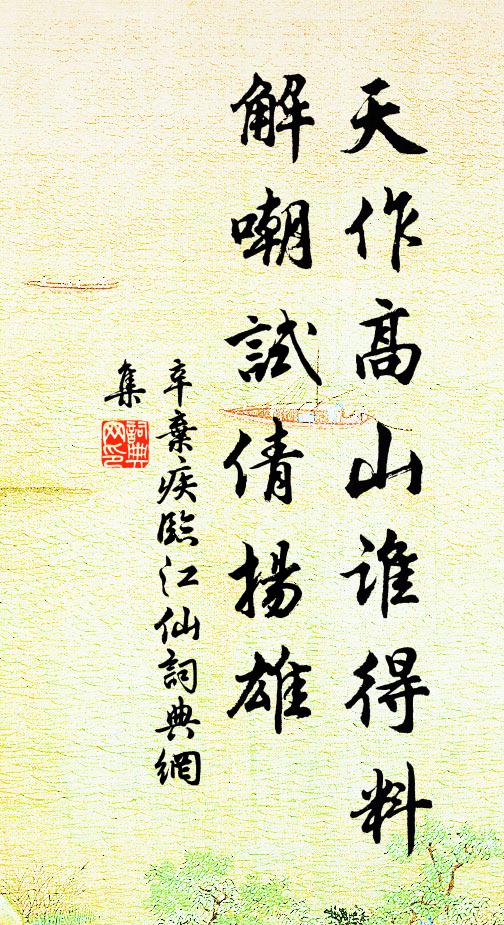 天作高山誰得料
解嘲試倩揚雄
辛棄疾臨江仙詞典網
集
詞典
网印